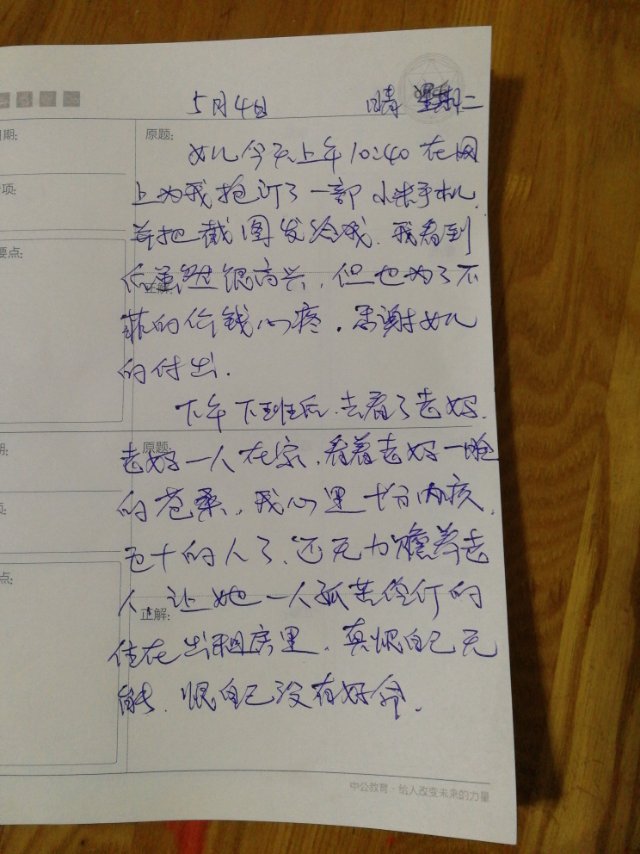 5月4日 晴 星期二
期:
原题:
女儿今天上午10:40在网
项:
上为我抢订了一部小米手机,
并把截图发给我。我看到
要点:
后虽然很高兴,但也为了不
正解:
菲的价钱心疼。感谢女儿
的付出。
下午下班后,去看了老妈。
期:
原题:
老妈一人在家,看着老妈一脸
的苍桑,我心里十分内疚,
项:
五十的人了,还无力赡养老
点:
人让她一人孤苦伶仃的
正解:
住在出租房里。真恨自己无
能,恨自己没有好命。
中公教育·给人改变未来的力量